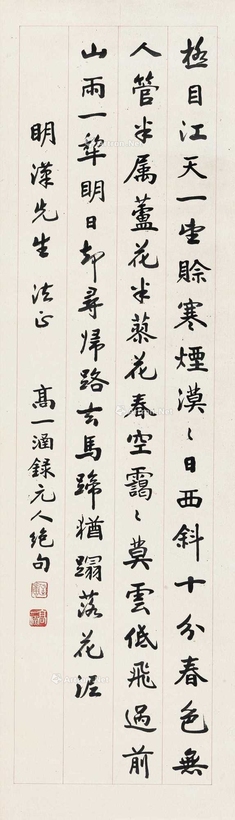 极目江天一望賒寒煙漠〻日西斜十分春色無
人管半属蘆花半蓼花春空靄〻莫雲低飛過前
山雨一犂明日却尋歸路去馬蹄猶蹋落花泥
明漢先生法正
高一涵録元人绝句